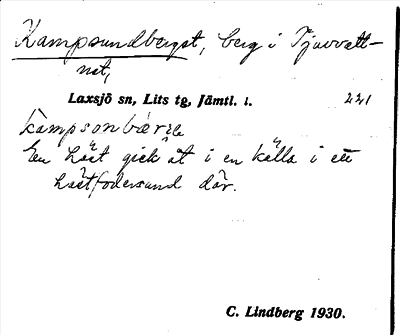 Kampsundberget, berg i Tjuvvatt-
net,
Laxsjö sn, Lits tg, Jämtl. l. 221
kampsonbærre
En häst gick åt i en källa i ett
hästfodersund där.
C. Lindberg 1930.